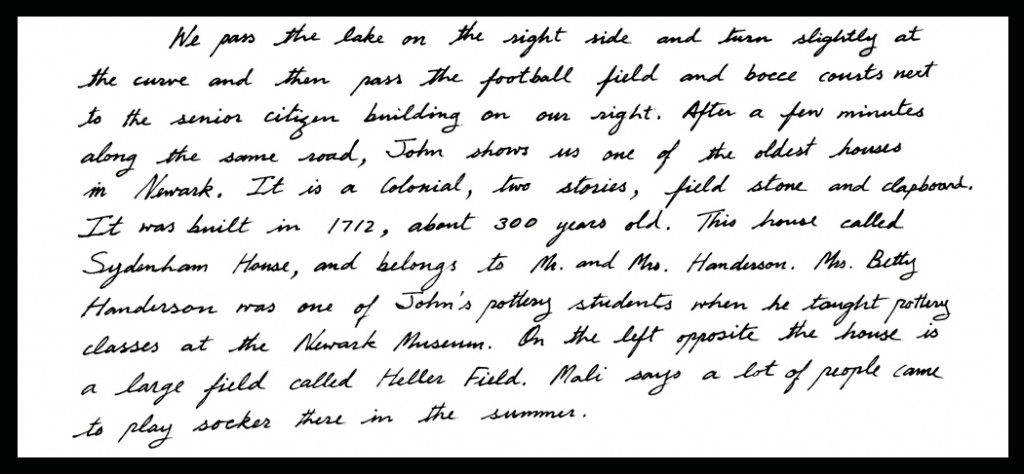 We pass the lake on the right side and turn slightly at
the curve and then pass the football field and bocce courts next
to the senior citizen building on our right. After a few minutes
along the same road, John shows us one of the oldest houses
in Newark. It is a Colonial, two stories, field stone and clapboard.
It was built in 1712, about 300 years old. This house called
Sydenham House, and belongs to Mr. and Mrs. Handerson. Mrs. Betty
Handerson was one of John's pottery students when he taught pottery
classes at the Newark Museum. On the left opposite the house is
a large field called Heller Field. Mali says a lot of people came
to play socker there in the summer.